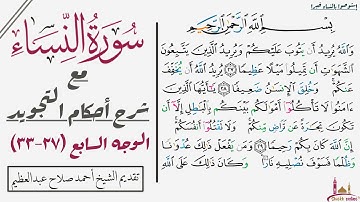 سُورَةُ النِّسَاءِ
مع
شرح أحكام التجويد
الوجه السابع (٢٧-٣٣)
تقديم الشيخ أحمد صلاح عبدالعظيم
بِسْمِ اللَّهِ الرَّحْمَنِ الرَّحِيمِ
وَاللَّهُ يُرِيدُ أَن يَتُوبَ عَلَيْكُمْ وَيُرِيدُ الَّذِينَ يَتَّبِعُونَ
الشَّهَوَاتِ أَن تَمِيلُوا مَيْلًا عَظِيمًا ٢٧ يُرِيدُ اللَّهُ أَن يُخَفِّفَ
عَنكُمْ وَخُلِقَ الْإِنسَانُ ضَعِيفًا ٢٨ يَا أَيُّهَا الَّذِينَ
آمَنُوا لَا تَأْكُلُوا أَمْوَالَكُم بَيْنَكُم بِالْبَاطِلِ إِلَّا أَن
تَكُونَ تِجَارَةً عَن تَرَاضٍ مِّنكُمْ وَلَا تَقْتُلُوا أَنفُسَكُمْ
إِنَّ اللَّهَ كَانَ بِكُمْ رَحِيمًا ٢٩ وَمَن يَفْعَلْ ذَلِكَ عُدْوَانًا
وَظُلْمًا فَسَوْفَ نُصْلِيهِ نَارًا وَكَانَ ذَلِكَ عَلَى اللَّهِ